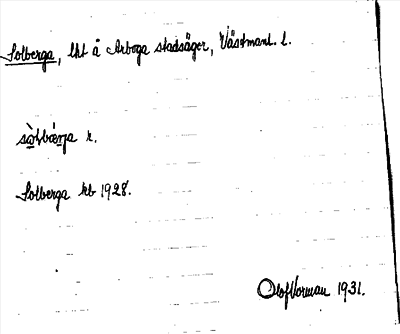 Solberga, lht å Arboga stadsäger, Västmanl. l.
r.
Solberga kb 1928.
Olof Norman 1931.